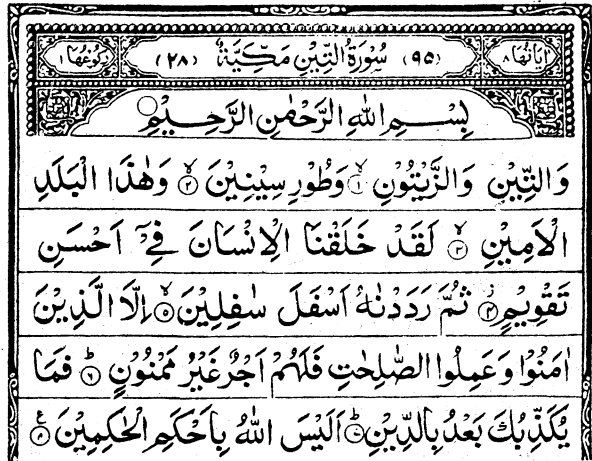 اٰيَاتُهَا ٨ (٩٥) سُوْرَةُ التِّيْنِ مَكِّيَّةٌ (٢٨) رُكُوْعُهَا ١
بِسْمِ اللهِ الرَّحْمٰنِ الرَّحِيْمِ
وَالتِّيْنِ وَالزَّيْتُوْنِ ۙ‏ ١ وَطُوْرِ سِيْنِيْنَ ۙ‏ ٢ وَهٰذَا الْبَلَدِ
الْاَمِيْنِ ۙ‏ ٣ لَقَدْ خَلَقْنَا الْاِنْسَانَ فِيْۤ اَحْسَنِ
تَقْوِيْمٍ ۡ‏ ٤ ثُمَّ رَدَدْنٰهُ اَسْفَلَ سٰفِلِيْنَ ۙ‏ ٥ اِلَّا الَّذِيْنَ
اٰمَنُوْا وَعَمِلُوا الصّٰلِحٰتِ فَلَهُمْ اَجْرٌ غَيْرُ مَمْنُوْنٍ ؕ‏ ٦ فَمَا
يُكَذِّبُكَ بَعْدُ بِالدِّيْنِ ؕ‏ ٧ اَلَيْسَ اللهُ بِاَحْكَمِ الْحٰكِمِيْنَ ٨ ع